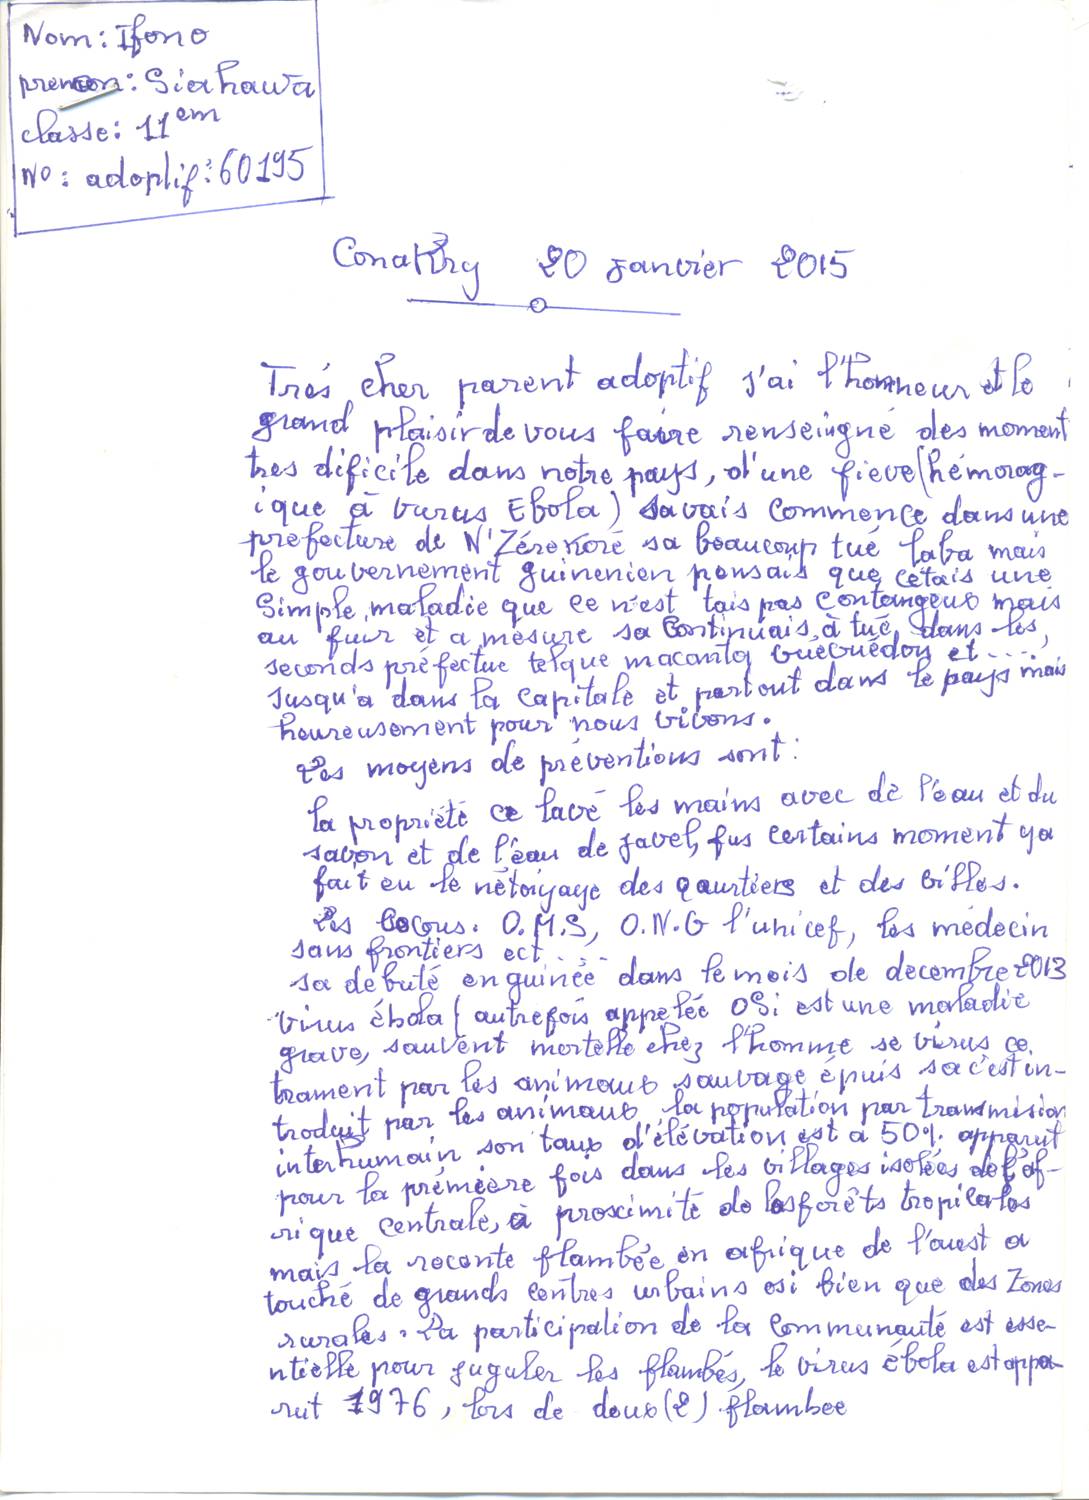 Nom: Ifono
prenom: Siahawa
classe: 11em
No: adoplif: 60195
Conakry 20 Janvier 2015
Trés cher parent adoptif j'ai l'honneur et le
grand plaisir de vous faire renseingné des moment
tres dificile dans notre pays, d'une fieve (hémorag-
ique à vurus Ebola) savais commence dans une
prefecture de N'Zérekoré sa beaucoup tué laba mais
le gouvernement guinenien pensais que cétais une
Simple maladie que ce n'est tais pas contangeux mais
au fuir et a mésure sa continuais à tué dans les
seconds préfectue telque macanta Guéguédou et ....
Jusqu'a dans la capitale et partout dans le pays mais
heureusement pour nous vivons.
Les moyens de préventions sont:
la propriété ce lavé les mains avec de l'eau et du
savon et de l'éau de javel, fus certains moment ya
fait eu le nétoiyage des qaurtiers et des villes.
Les secous. O.M.S, O.N.G l'unicef, les médecin
sans frontiers ect....
sa débuté en guinée dans le mois de decembre 2013
virus ébola (autrefois appelée OSi est une maladie
grave, sauvent mortelle chez l'homme se virus ce
trament par les animaux sauvage épuis sa c'est in-
troduit par les animaux, la population par transmision
interhumain son taux d'élévation est à 50% apparut
pour la prémière fois dans les villages isolées de l'af-
rique centrale, à proximité de les forêts tropicales
mais la recente flambée en afrique de l'ouest a
touché de grands centres urbains osi bien que des Zones
rurales. La participation de la communauté est esse-
ntielle pour juguler les flambés, le virus ébola est appa-
rut 1976, lors de deux (2) flambee